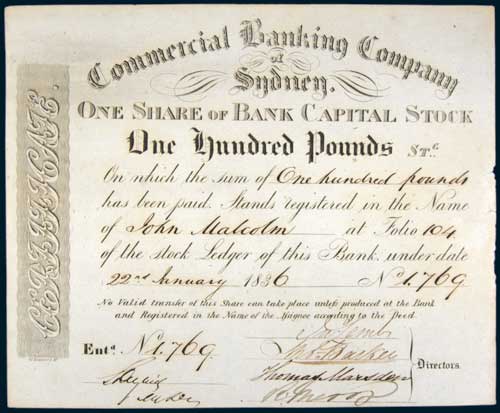 CERTIFICATE.
Commercial Banking Company
of
Sydney.
ONE SHARE OF BANK CAPITAL STOCK
One Hundred Pounds STG.
On which the sum of One hundred pounds
has been paid. Stands registered in the Name
of John Malcolm at Folio 104
of the stock Ledger of this Bank, under date
22nd January 1836 No. 1.769
No Valid transfer of this Share can take place unless produced at the Bank
and Registered in the Name of the Assignee according to the Deed.
Entd. No. 1.769
Thomas Marsden
Directors.